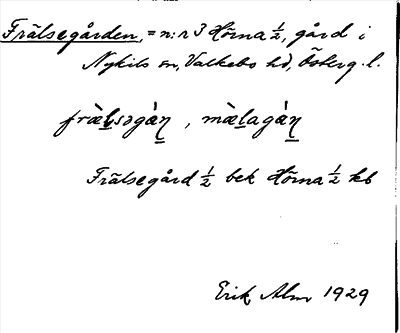 Frälsegården, = n:r 3 Hörna 1/2, gård i
Nykils sn, Valkebo hd, Österg. l.
fræ̀l̬səgàṇ , mæ̀l̬agàṇ
Frälsegård 1/2 bek Hörna 1/2 kb
Erik Alm 1929